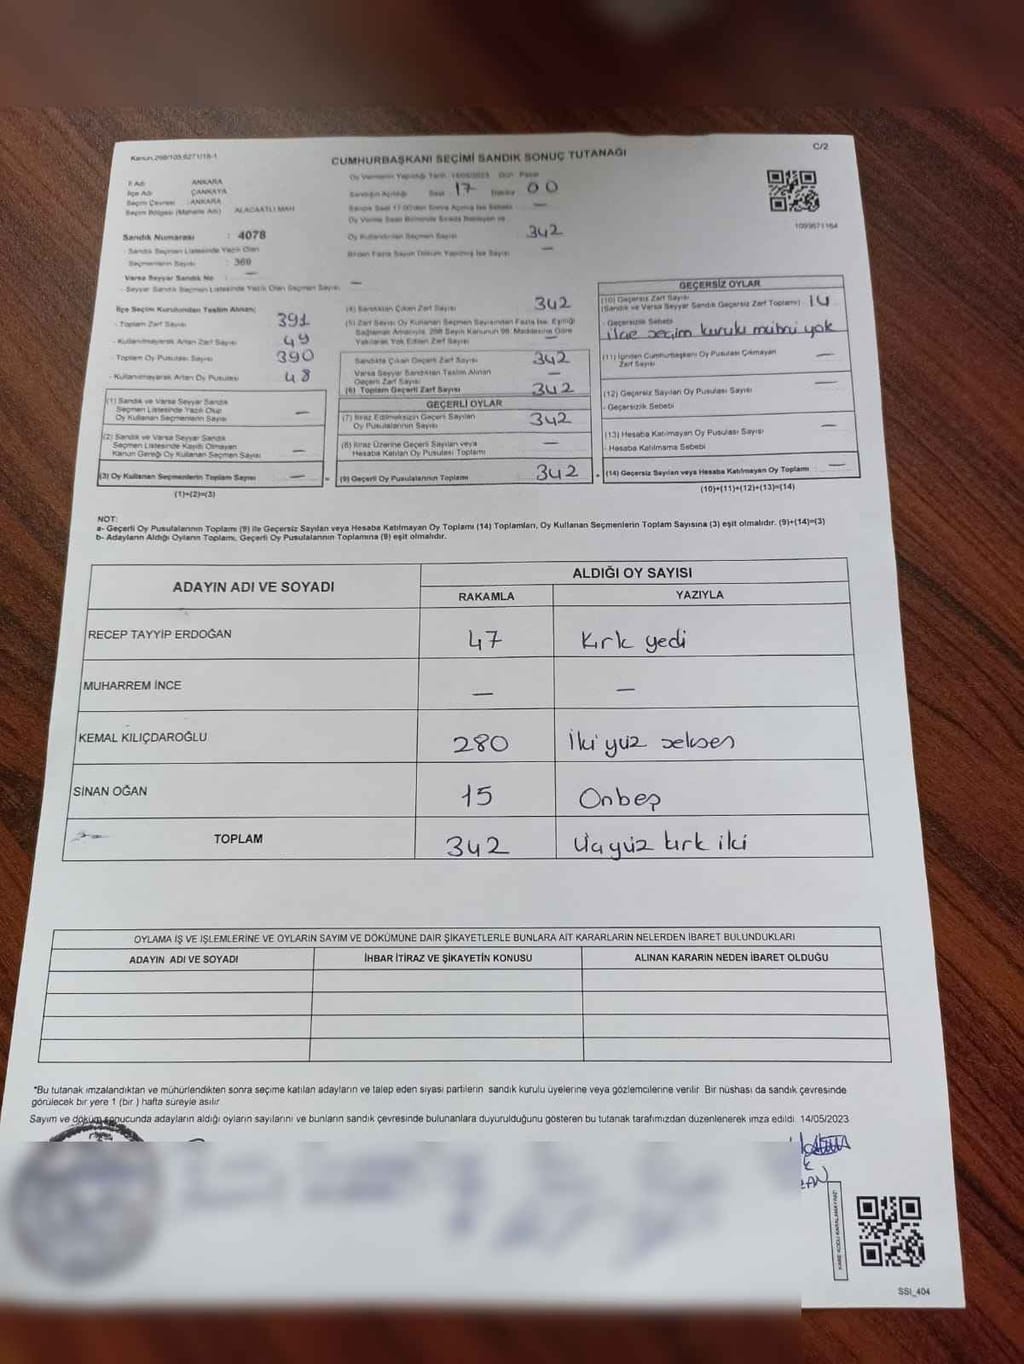 Kanun,298/105,6271/18-1
C/2
CUMHURBAŞKANI SEÇİMİ SANDIK SONUÇ TUTANAĞI
İl Adı ANKARA
İlçe Adı ÇANKAYA
Seçim Çevresi : ANKARA
Seçim Bölgesi (Mahalle Adı) ALACAATLI MAH
Sandık Numarası : 4078
- Sandık Seçmen Listesinde Yazılı Olan
Seçmenlerin Sayısı : 369
Varsa Seyyar Sandık No —
- Seyyar Sandık Seçmen Listesinde Yazılı Olan Seçmen Sayısı —
Oy Vermenin Yapıldığı Tarih 14/05/2023 Gün Pazar
Sandığın Açıldığı Saat 17 Dakika 00
Oy Kullandırılan Seçmen Sayısı 342
Birden Fazla Sayım Döküm Yapılmış İse Sayısı —
1099671164
İlçe Seçim Kurulundan Teslim Alınan;
- Toplam Zarf Sayısı 391
- Kullanılmayarak Artan Zarf Sayısı 49
- Toplam Oy Pusulası Sayısı 390
- Kullanılmayarak Artan Oy Pusulası 48
(1) Sandık ve Varsa Seyyar Sandık
Seçmen Listesinde Yazılı Olup
Oy Kullanan Seçmenlerin Sayısı —
(2) Sandık ve Varsa Seyyar Sandık
Seçmen Listesinde Kayıtlı Olmayan
Kanun Gereği Oy Kullanan Seçmen Sayısı —
(3) Oy Kullanan Seçmenlerin Toplam Sayısı —
(1)+(2)=(3)
(4) Sandıktan Çıkan Zarf Sayısı 342
(5) Zarf Sayısı Oy Kullanan Seçmen Sayısından Fazla İse, Eşitliği
Sağlamak Amacıyla, 298 Sayılı Kanunun 98. Maddesine Göre
Yakılarak Yok Edilen Zarf Sayısı —
Sandıkta Çıkan Geçerli Zarf Sayısı 342
Varsa Seyyar Sandıktan Teslim Alınan
Geçerli Zarf Sayısı —
(6) Toplam Geçerli Zarf Sayısı 342
GEÇERLİ OYLAR
(7) İtiraz Edilmeksizin Geçerli Sayılan
Oy Pusulalarının Sayısı 342
(8) İtiraz Üzerine Geçerli Sayılan veya
Hesaba Katılan Oy Pusulası Toplamı —
(9) Geçerli Oy Pusulalarının Toplamı 342
GEÇERSİZ OYLAR
(10) Geçersiz Zarf Sayısı
(Sandık ve Varsa Seyyar Sandık Geçersiz Zarf Toplamı) 14
- Geçersizlik Sebebi
ilçe seçim kurulu mührü yok
(11) İçinden Cumhurbaşkanı Oy Pusulası Çıkmayan
Zarf Sayısı —
(12) Geçersiz Sayılan Oy Pusulası Sayısı —
- Geçersizlik Sebebi
(13) Hesaba Katılmayan Oy Pusulası Sayısı —
- Hesaba Katılmama Sebebi
(14) Geçersiz Sayılan veya Hesaba Katılmayan Oy Toplamı —
(10)+(11)+(12)+(13)=(14)
NOT:
a- Geçerli Oy Pusulalarının Toplamı (9) ile Geçersiz Sayılan veya Hesaba Katılmayan Oy Toplamı (14) Toplamları, Oy Kullanan Seçmenlerin Toplam Sayısına (3) eşit olmalıdır. (9)+(14)=(3)
b- Adayların Aldığı Oyların Toplamı, Geçerli Oy Pusulalarının Toplamına (9) eşit olmalıdır.
ADAYIN ADI VE SOYADI
ALDIĞI OY SAYISI
RAKAMLA YAZIYLA
RECEP TAYYİP ERDOĞAN 47 Kırk yedi
MUHARREM İNCE — —
KEMAL KILIÇDAROĞLU 280 İki yüz seksen
SİNAN OĞAN 15 Onbeş
TOPLAM 342 Üçyüz kırk iki
OYLAMA İŞ VE İŞLEMLERİNE VE OYLARIN SAYIM VE DÖKÜMÜNE DAİR ŞİKAYETLERLE BUNLARA AİT KARARLARIN NELERDEN İBARET BULUNDUKLARI
ADAYIN ADI VE SOYADI İHBAR İTİRAZ VE ŞİKAYETİN KONUSU ALINAN KARARIN NEDEN İBARET OLDUĞU
*Bu tutanak imzalandıktan ve mühürlendikten sonra seçime katılan adayların ve talep eden siyasi partilerin sandık kurulu üyelerine veya gözlemcilerine verilir. Bir nüshası da sandık çevresinde
görülecek bir yere 1 (bir ) hafta süreyle asılır.
Sayım ve döküm sonucunda adayların aldığı oyların sayılarını ve bunların sandık çevresinde bulunanlara duyurulduğunu gösteren bu tutanak tarafımızdan düzenlenerek imza edildi. 14/05/2023
KARE KODU KARALAMAYINIZ!
SSI_404